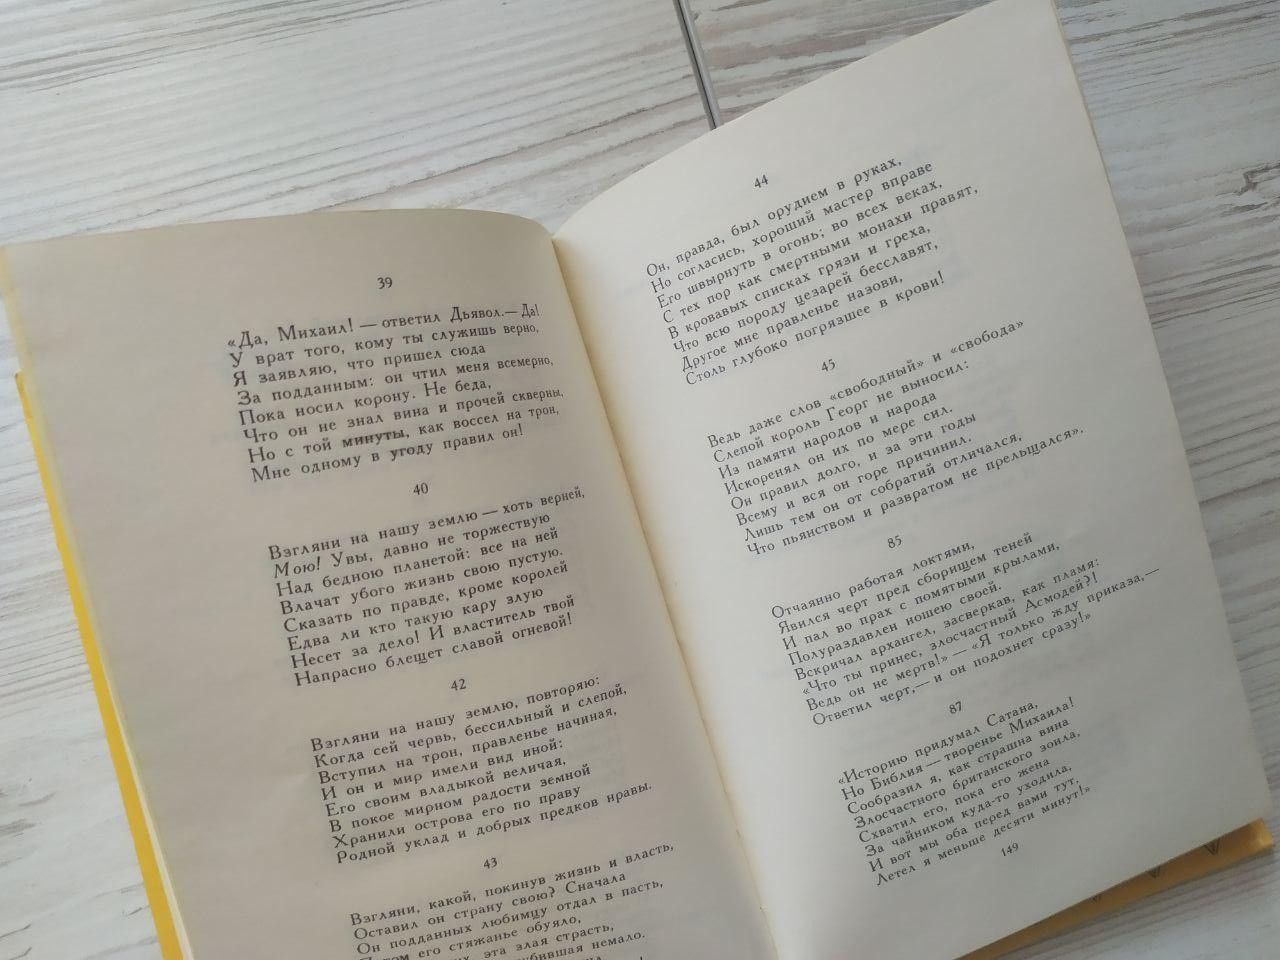 39
«Да, Михаил! — ответил Дьявол.— Да!
У врат того, кому ты служишь верно,
Я заявляю, что пришел сюда
За подданным: он чтил меня всемерно,
Пока носил корону. Не беда,
Что он не знал вина и прочей скверны,
Но с той минуты, как воссел на трон,
Мне одному в угоду правил он!
40
Взгляни на нашу землю — хоть верней,
Мою! Увы, давно не торжествую
Над бедною планетой: все на ней
Влачат убого жизнь свою пустую.
Сказать по правде, кроме королей
Едва ли кто такую кару злую
Несет за дело! И властитель твой
Напрасно блещет славой огневой!
42
Взгляни на нашу землю, повторяю:
Когда сей червь, бессильный и слепой,
Вступил на трон, правленье начиная,
И он и мир имели вид иной:
Его своим владыкой величая,
В покое мирном радости земной
Хранили острова его по праву
Родной уклад и добрых предков нравы.
43
Взгляни, какой, покинув жизнь и власть,
Оставил он страну свою? Сначала
Он подданных любимцу отдал в пасть,
Потом его стяжанье обуяло,
эта злая страсть,
немало.
44
Он, правда, был орудием в руках,
Но согласись, хороший мастер вправе
Его швырнуть в огонь; во всех веках,
С тех пор как смертными монахи правят,
В кровавых списках грязи и греха,
Что всю породу цезарей бесславят,
Другое мне правленье назови,
Столь глубоко погрязшее в крови!
45
Ведь даже слов «свободный» и «свобода»
Слепой король Георг не выносил:
Из памяти народов и народа
Искоренял он их по мере сил.
Он правил долго, и за эти годы
Всему и вся он горе причинил.
Лишь тем он от собратий отличался,
Что пьянством и развратом не прельщался».
85
Отчаянно работая локтями,
Явился черт пред сборищем теней
И пал во прах с помятыми крылами,
Полураздавлен ношею своей.
Вскричал архангел, засверкав, как пламя:
«Что ты принес, злосчастный Асмодей?!
Ведь он не мертв!» — «Я только жду приказа,—
Ответил черт,— и он подохнет сразу!»
87
«Историю придумал Сатана,
Но Библия — творенье Михаила!
Сообразил я, как страшна вина
Злосчастного британского зоила,
Схватил его, пока его жена
За чайником куда-то уходила,
И вот мы оба перед вами тут,
Летел я меньше десяти минут!»
149